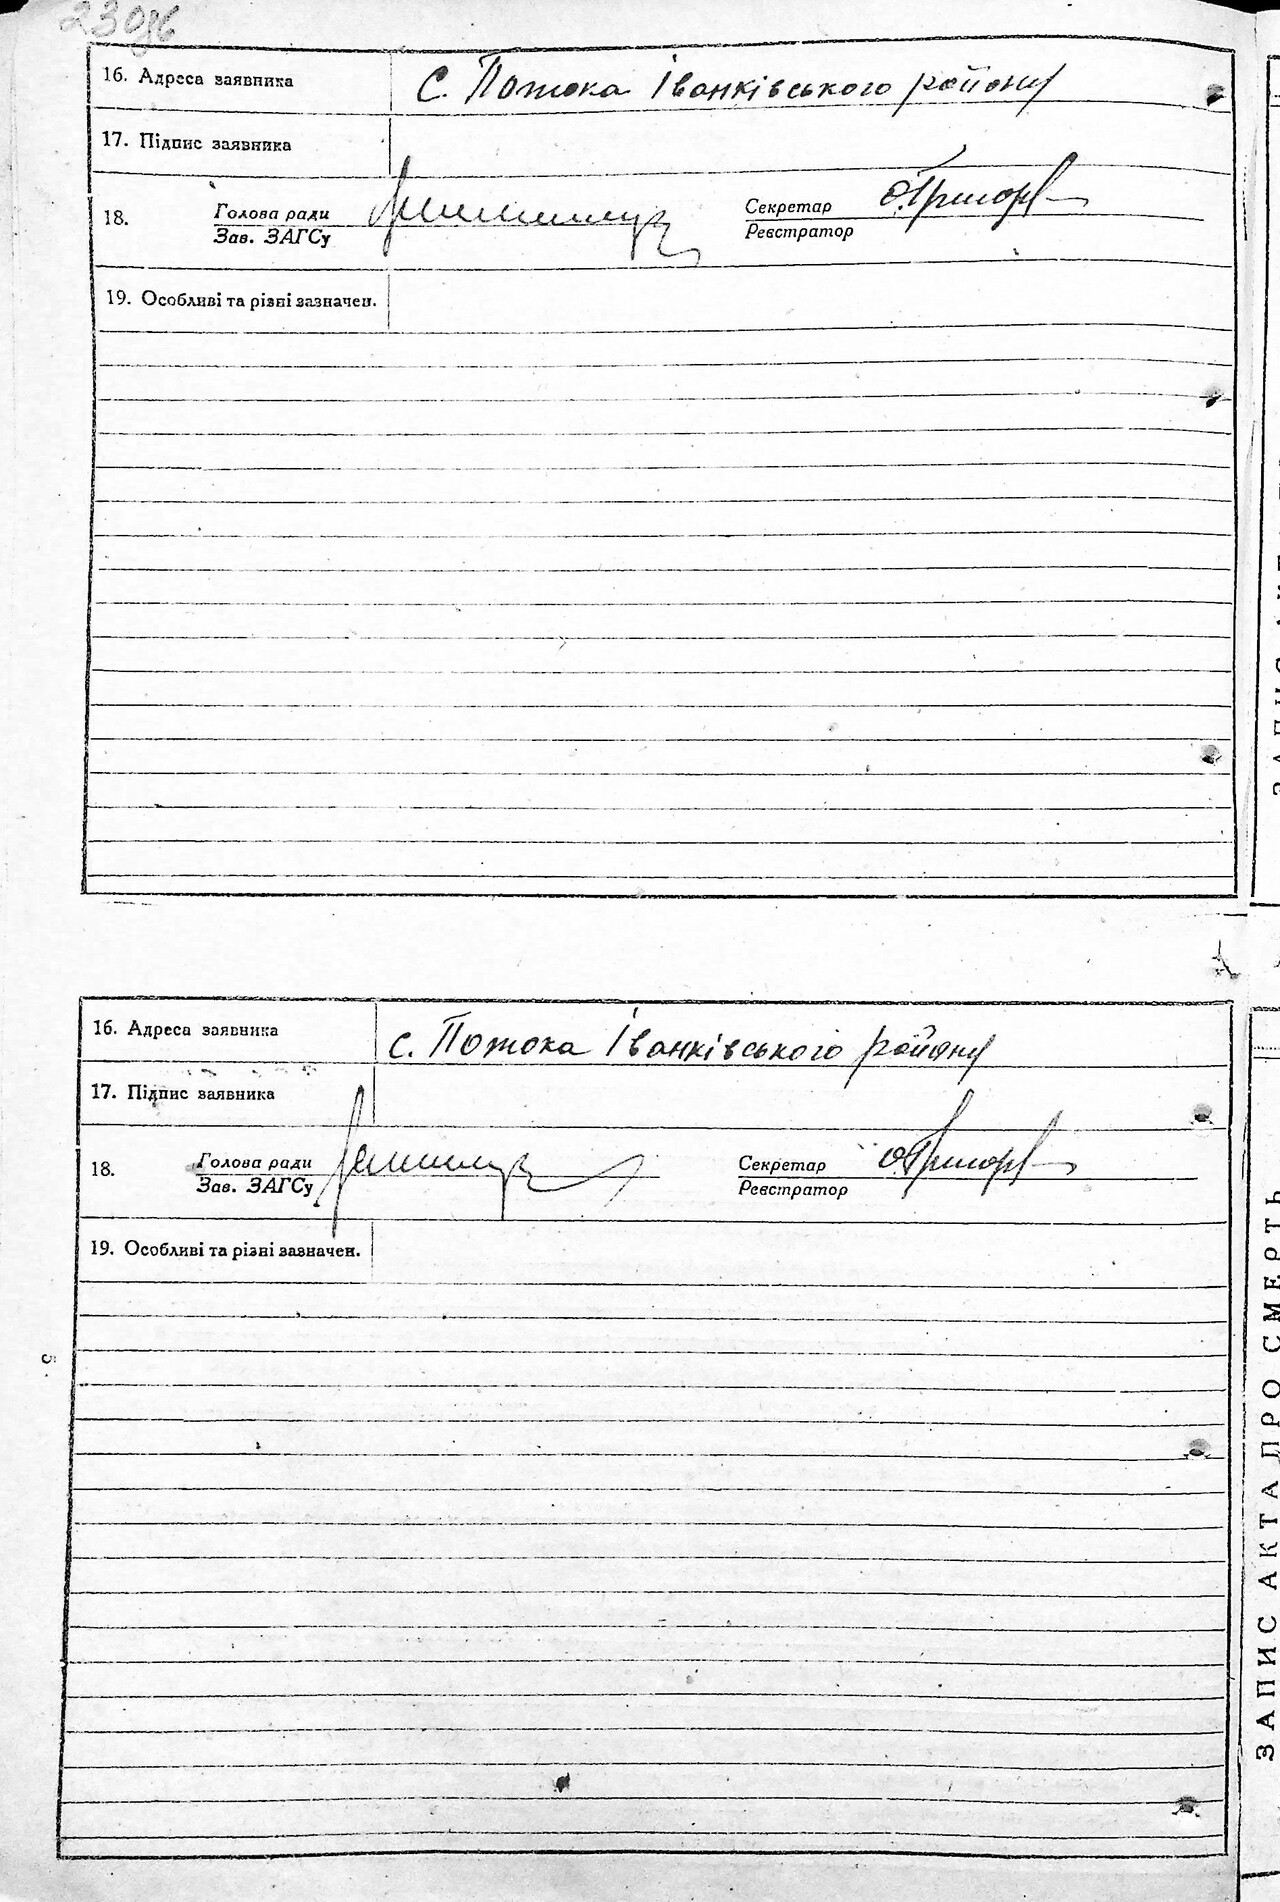 230
16. Адреса заявника с. Потока Іванківського району
17. Підпис заявника
18. Голова ради Секретар
Зав. ЗАГСу Реєстратор
19. Особливі та різні зазначен.
16. Адреса заявника с. Потока Іванківського району
17. Підпис заявника
18. Голова ради Секретар
Зав. ЗАГСу Реєстратор
19. Особливі та різні зазначен.
ЗАПИС АКТА ПРО СМЕРТЬ